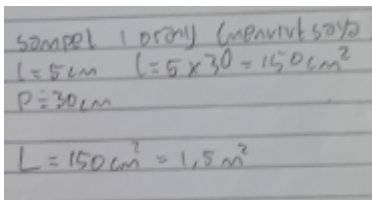 sampel 1 orang (menurut saya)
l = 5 cm l = 5 x 30 = 150 cm²
P = 30 cm
L = 150 cm² = 1,5 m²